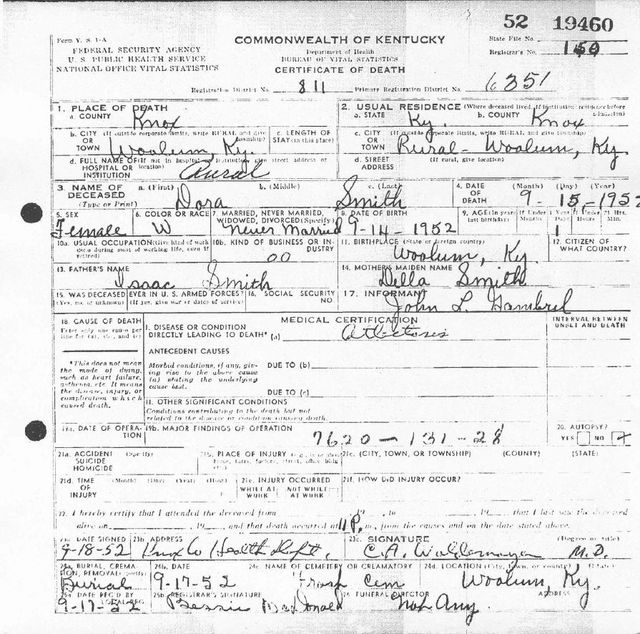 52 19460
Form V. S. 1-A
COMMONWEALTH OF KENTUCKY
State File No.
FEDERAL SECURITY AGENCY
Department of Health
Registrar's No. 150
U. S. PUBLIC HEALTH SERVICE
BUREAU OF VITAL STATISTICS
NATIONAL OFFICE VITAL STATISTICS
CERTIFICATE OF DEATH
Registration District No. 811 Primary Registration District No. 6351
1. PLACE OF DEATH
a. COUNTY Knox
2. USUAL RESIDENCE (Where deceased lived. If institution: residence before admission)
a. STATE Ky. b. COUNTY Knox
b. CITY OR TOWN (If outside corporate limits, write RURAL and give township) Woolum, Ky.
c. LENGTH OF STAY (in this place)
c. CITY OR TOWN (If outside corporate limits, write RURAL and give township) Rural-Woolum, Ky.
d. FULL NAME OF HOSPITAL OR INSTITUTION (If not in hospital or institution, give street address or location) Rural
d. STREET ADDRESS (If rural, give location)
3. NAME OF DECEASED (Type or Print)
a. (First) Dora b. (Middle) c. (Last) Smith
4. DATE OF DEATH (Month) (Day) (Year) 9-15-1952
5. SEX Female
6. COLOR OR RACE W
7. MARRIED, NEVER MARRIED, WIDOWED, DIVORCED (Specify) Never Married
8. DATE OF BIRTH 9-14-1952
9. AGE 1
10a. USUAL OCCUPATION (Give kind of work done during most of working life, even if retired)
10b. KIND OF BUSINESS OR INDUSTRY 00
11. BIRTHPLACE (State or foreign country) Woolum, Ky.
12. CITIZEN OF WHAT COUNTRY?
13. FATHER'S NAME Isaac Smith
14. MOTHER'S MAIDEN NAME Della Smith
15. WAS DECEASED EVER IN U. S. ARMED FORCES?
(Yes, no, or unknown) (If yes, give war or dates of service)
16. SOCIAL SECURITY NO
17. INFORMANT John L. Gambrel
18. CAUSE OF DEATH
Enter only one cause per line for (a), (b), and (c)
MEDICAL CERTIFICATION
INTERVAL BETWEEN ONSET AND DEATH
I. DISEASE OR CONDITION DIRECTLY LEADING TO DEATH* (a)
*This does not mean the mode of dying, such as heart failure, asthenia, etc. It means the disease, injury, or complication which caused death.
ANTECEDENT CAUSES
Morbid conditions, if any, giving rise to the above cause (a) stating the underlying cause last.
DUE TO (b)
DUE TO (c)
II. OTHER SIGNIFICANT CONDITIONS
Conditions contributing to the death but not related to the disease or condition causing death.
19a. DATE OF OPERATION
19b. MAJOR FINDINGS OF OPERATION
7620-131-28
20. AUTOPSY?
YES NO
21a. ACCIDENT SUICIDE HOMICIDE (Specify)
21b. PLACE OF INJURY
21c. (CITY, TOWN, OR TOWNSHIP) (COUNTY) (STATE)
21d. TIME OF INJURY (Month) (Day) (Year) (Hour)
21e. INJURY OCCURRED WHILE AT WORK NOT WHILE AT WORK
21f. HOW DID INJURY OCCUR?
22. I hereby certify that I attended the deceased from 19 to 19 that I last saw the deceased
alive on 19 and that death occurred at 11 P. m., from the causes and on the date stated above.
23a. DATE SIGNED 9-18-52
23b. ADDRESS Knox Co Health Dept.
23c. SIGNATURE (Degree or title) C. A. M.D.
24a. BURIAL, CREMATION, REMOVAL (Specify) Burial
24b. DATE 9-17-52
24c. NAME OF CEMETERY OR CREMATORY Cem
24d. LOCATION (City, town, or county) (State) Woolum, Ky.
25a. DATE REC'D BY LOCAL REG. 9-17-52
25b. REGISTRAR'S SIGNATURE Bessie McDonald
26. FUNERAL DIRECTOR Not Any.